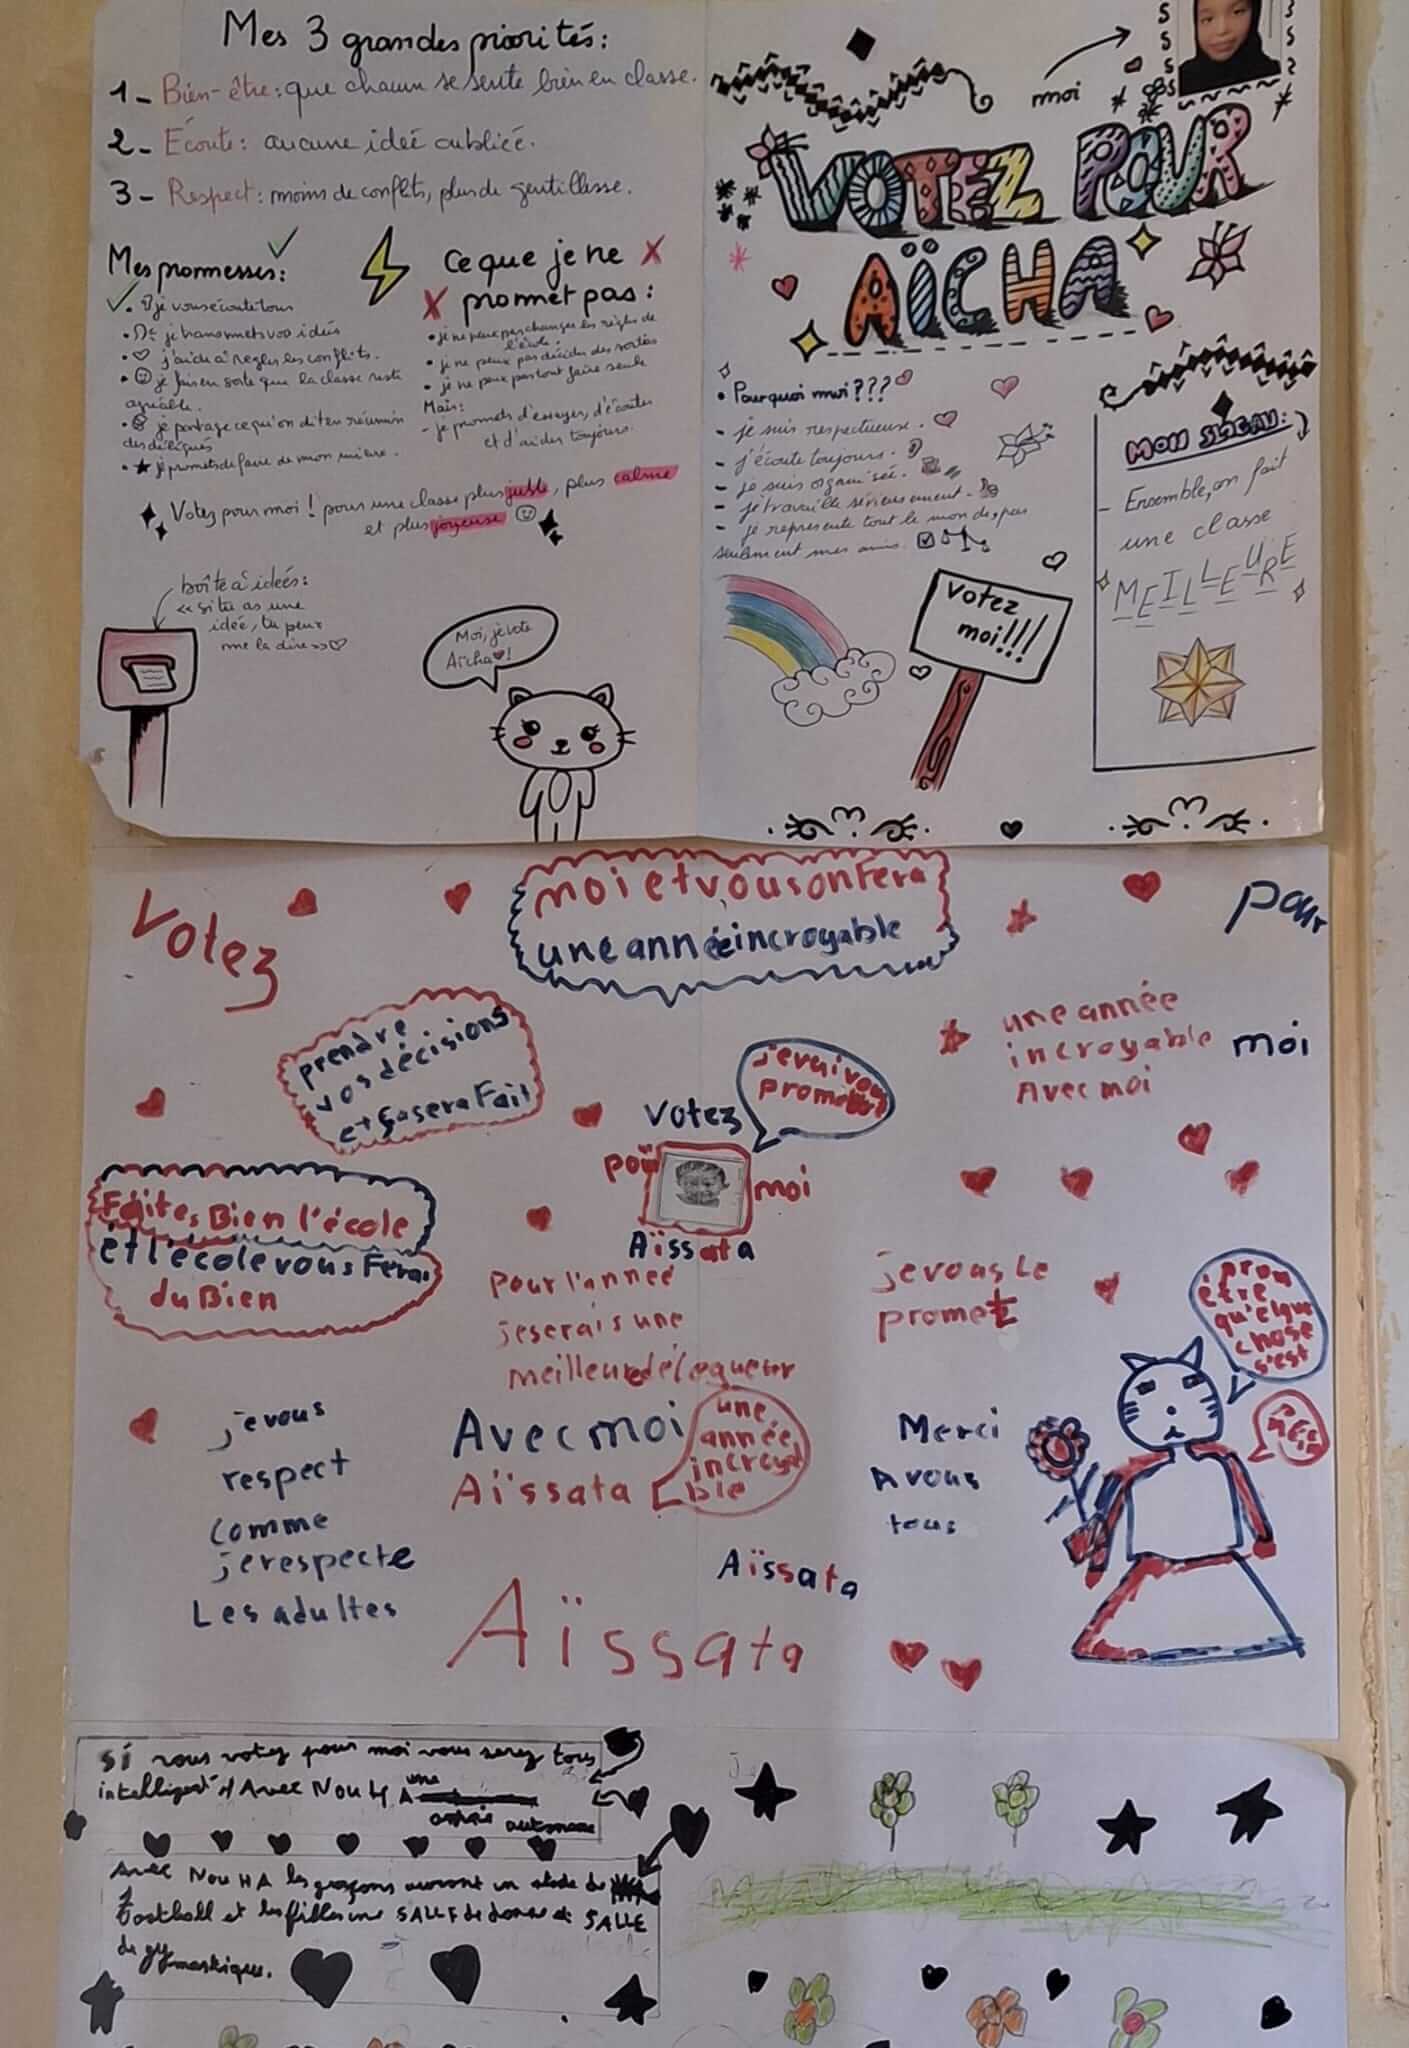 Mes 3 grandes priorités:
1- Bien-être: que chacun se sente bien en classe.
2- Écoute: aucune idée oubliée.
3- Respect: moins de conflits, plus de gentillesse.
Mes promesses:
• je vous écoute tous
• je transmets vos idées
• j'aide à régler les conflits.
• je fais en sorte que la classe reste
agréable.
• je partage ce qu'on dit en réunion
des délégués
• je promets de faire de mon mieux.
Ce que je ne
promet pas:
• je ne peux pas changer les règles de
l'école.
• je ne peux pas décider des sorties
• je ne peux pas tout faire seule
Mais:
- je promets d'essayer, d'écouter
et d'aider toujours.
Votez pour moi! pour une classe plus juste, plus calme
et plus joyeuse
boîte à idées:
« si tu as une
idée, tu peux
me la dire »
Moi, je vote
Aïcha !
moi
VOTEZ POUR
AÏCHA
• Pourquoi moi???
- je suis respectueuse.
- j'écoute toujours.
- je suis organisée.
- je travaille sérieusement.
- je représente tout le monde, pas
seulement mes amis.
votez
moi!!!
MON SLOGAN:
- Ensemble, on fait
une classe
MEILLEURE
Votez
moi et vous on Fera
une année incroyable
pour
moi
prendre
vos décisions
et ça sera Fait
une année
incroyable
Avec moi
Votez
pour
moi
Aïssata
Faites Bien l'école
et l'école vous Fera
du Bien
pour l'année
je serais une
meilleur
je vous Le
promet
qu'elque
chose
s'est
je vous
respect
comme
je respecte
Les adultes
Avec moi
Aïssata
une
année
incroya
ble
Merci
A vous
tous
Aïssata
Aïssata
si vous votez pour moi vous serez tous
intelligent Avec NOUHA
une
Avec NOUHA les garçons auront un stade de
Football et les filles une SALLE de danse et SALLE
de gymnastique.